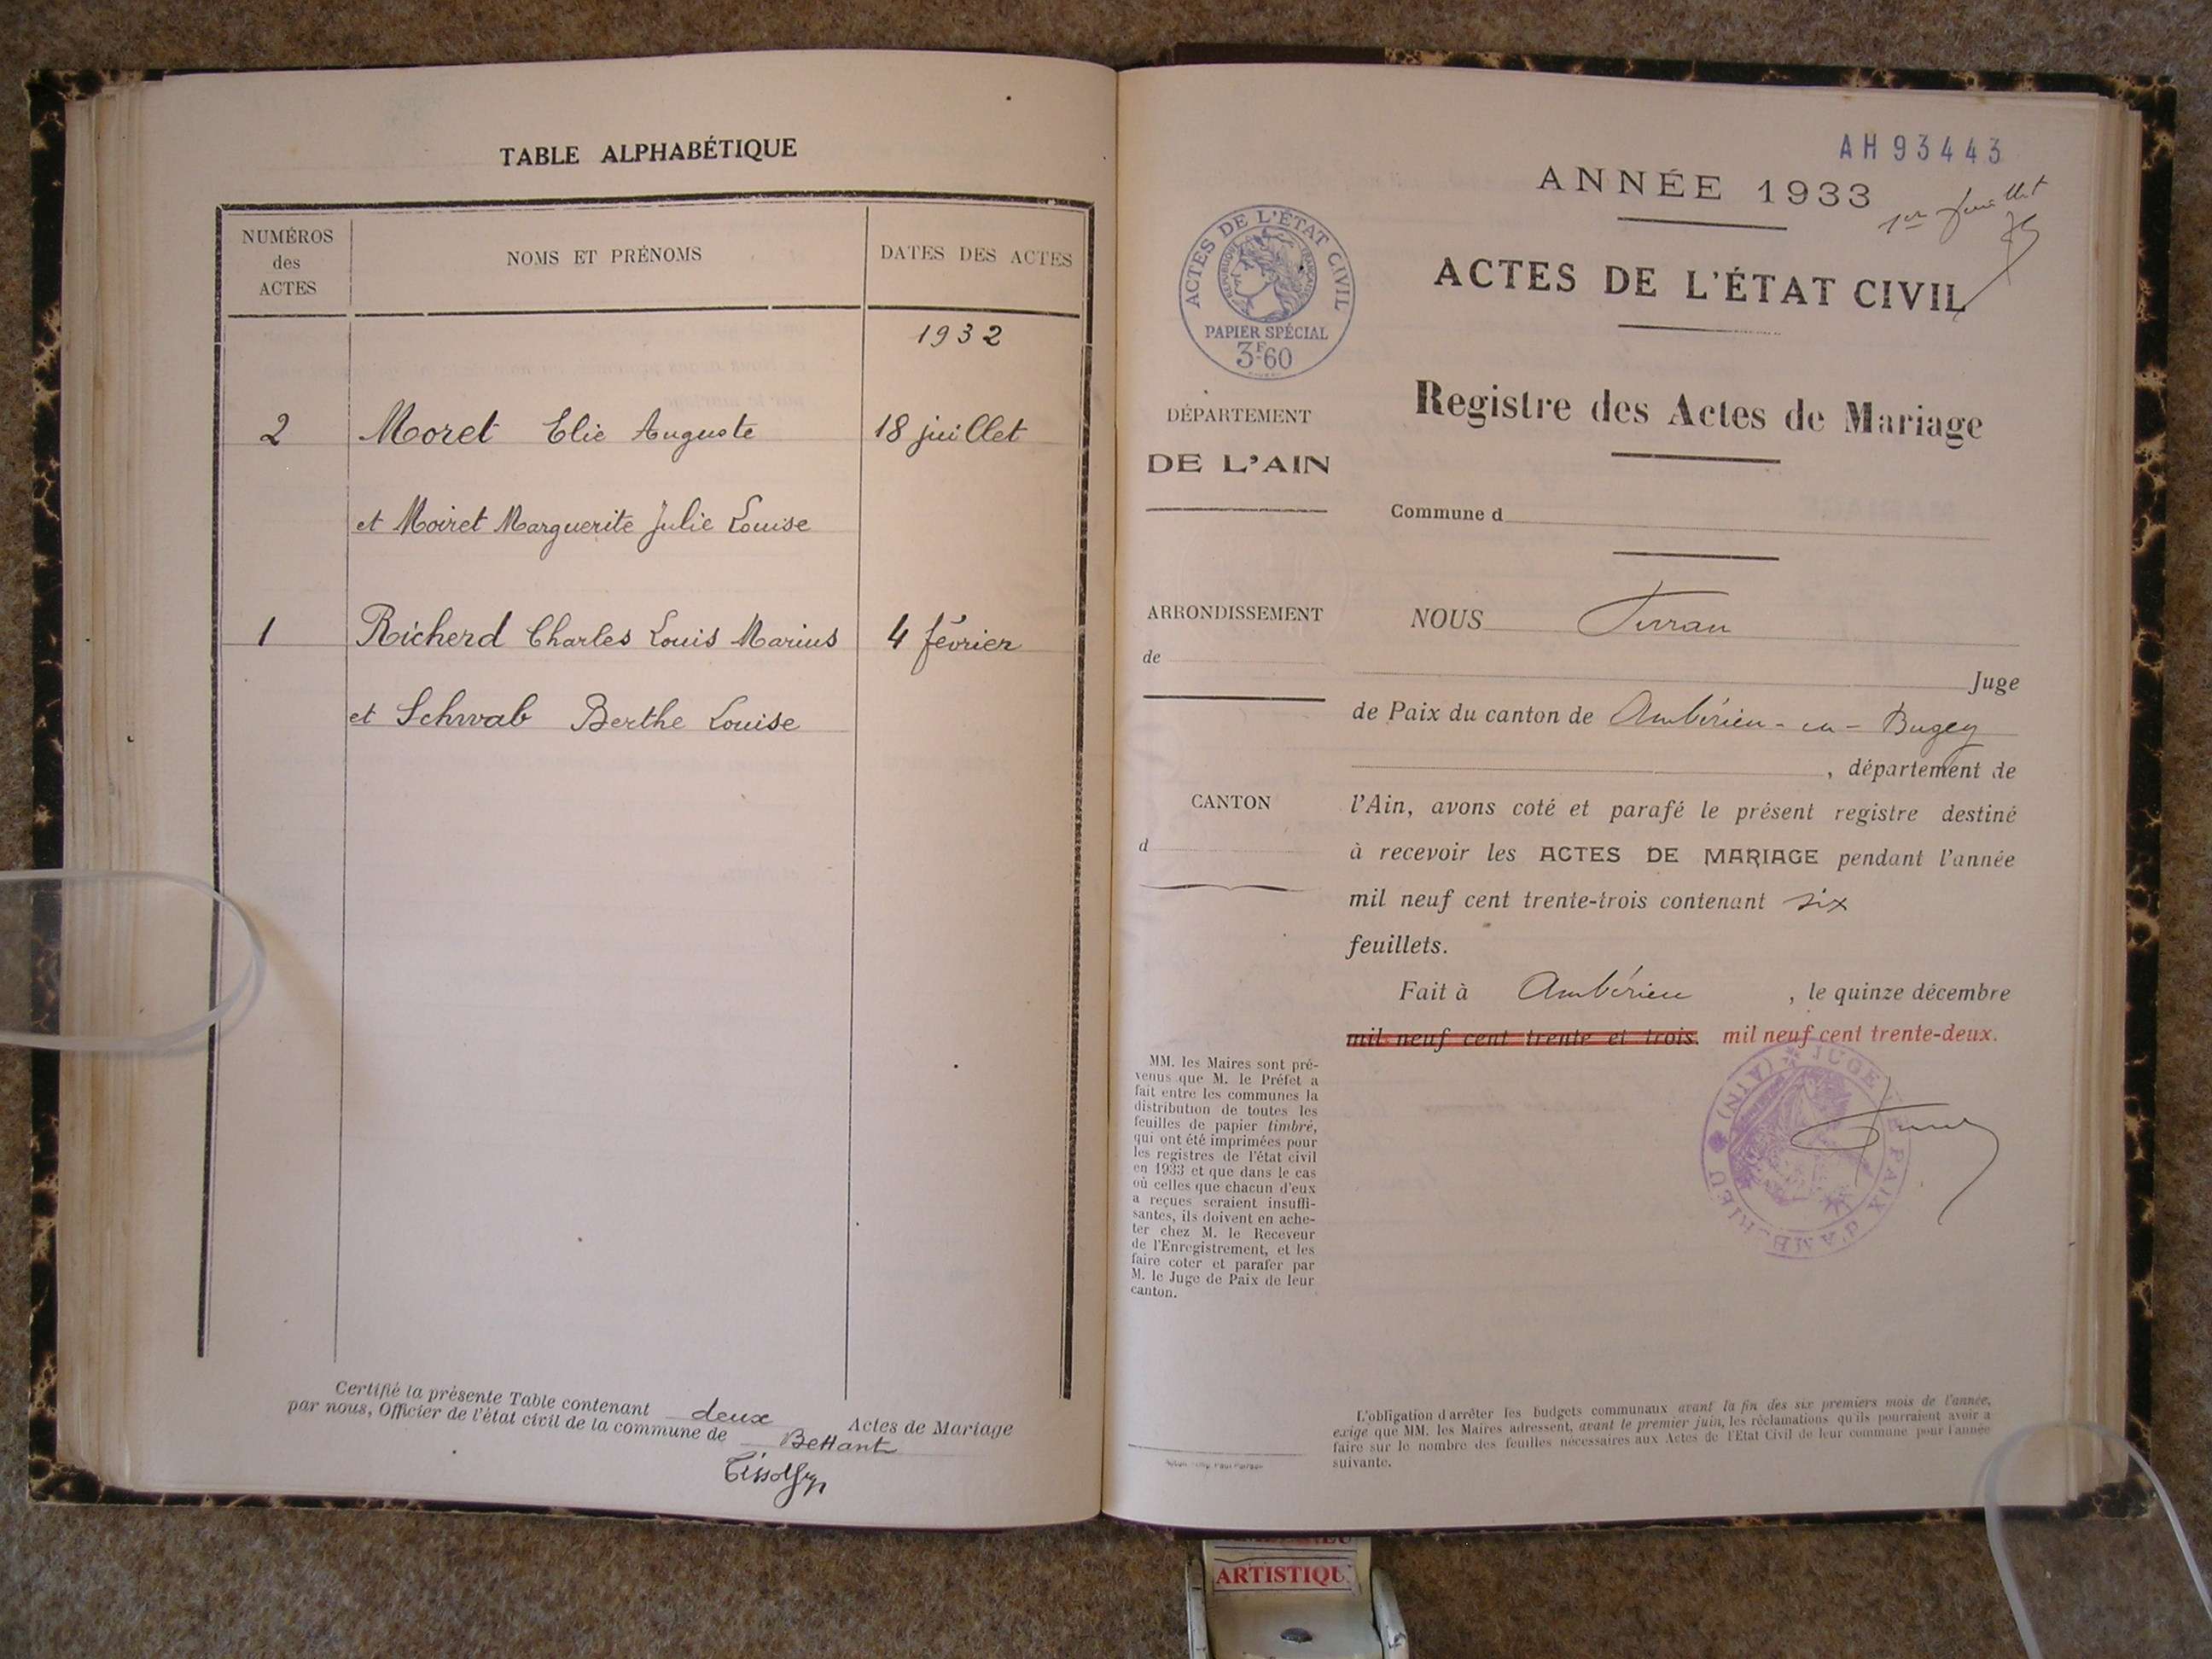 TABLE ALPHABÉTIQUE
NUMÉROS
des
ACTES
NOMS ET PRÉNOMS
DATES DES ACTES
1932
2 Moret Elie Auguste 18 juillet
et Moiret Marguerite Julie Louise
1 Richerd Charles Louis Marius 4 février
et Schwab Berthe Louise
Certifié la présente Table contenant deux Actes de Mariage
par nous, Officier de l'état civil de la commune de Bettant
AH93443
ANNÉE 1933
1er feuillet
ACTES DE L'ÉTAT CIVIL
ACTES DE L'ÉTAT CIVIL
RÉPUBLIQUE FRANÇAISE
PAPIER SPÉCIAL
3F60
Registre des Actes de Mariage
DÉPARTEMENT
DE L'AIN
Commune d
ARRONDISSEMENT
de
CANTON
d
NOUS
Juge
de Paix du canton de Ambérieu-en-Bugey
, département de
l'Ain, avons coté et parafé le présent registre destiné
à recevoir les ACTES DE MARIAGE pendant l'année
mil neuf cent trente-trois contenant six
feuillets.
Fait à Ambérieu , le quinze décembre
mil neuf cent trente et trois. mil neuf cent trente-deux.
JUGE DE PAIX D'AMBÉRIEU (AIN)
MM. les Maires sont pré-
venus que M. le Préfet a
fait entre les communes la
distribution de toutes les
feuilles de papier timbré,
qui ont été imprimées pour
les registres de l'état civil
en 1933 et que dans le cas
où celles que chacun d'eux
a reçues seraient insuffi-
santes, ils doivent en ache-
ter chez M. le Receveur
de l'Enregistrement, et les
faire coter et parafer par
M. le Juge de Paix de leur
canton.
L'obligation d'arrêter les budgets communaux avant la fin des six premiers mois de l'année,
exige que MM. les Maires adressent, avant le premier juin, les réclamations qu'ils pourraient avoir à
faire sur le nombre des feuilles nécessaires aux Actes de l'Etat Civil de leur commune pour l'année
suivante.
ARTISTIQU